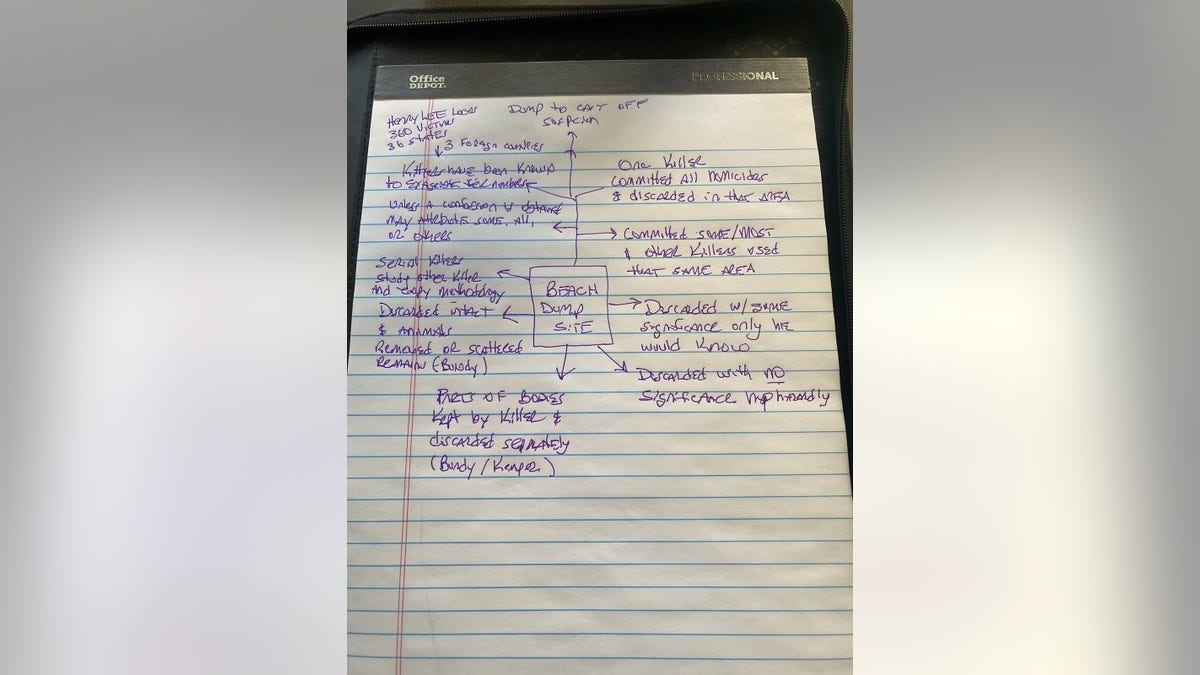 Office
DEPOT.
PROFESSIONAL
Henry LEE Lucas
360 Victims
36 STATES
3 Foreign countries
Dump to CAST OFF
Killers have been known
to numbers
Unless A confession is obtained
may Attribute some, all,
OR others
Serial Killers
study other Killer
And copy methodology
Discarded intact
& Animals
Removed OR scattered
REMAIN (Bundy)
BEACH
Dump
SITE
One Killer
Committed All Homicides
& discarded in that AREA
Committed some/most
& other Killers used
that SAME AREA
Discarded w/ some
significance only HE
would Know
Discarded with NO
Significance
PARTS OF BODIES
Kept by Killer &
discarded separately
(Bundy / Kemper)